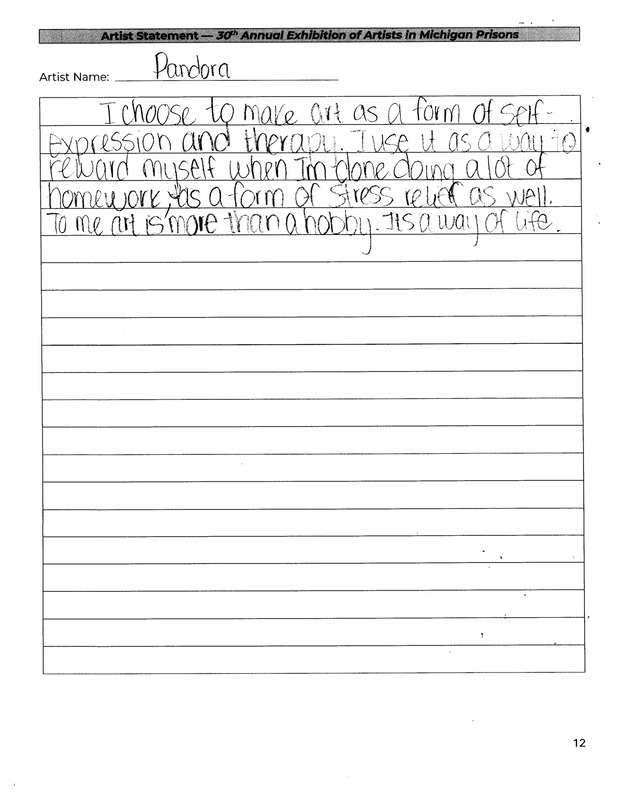 Artist Statement — 30th Annual Exhibition of Artists in Michigan Prisons
Artist Name: Pandora
I choose to make art as a form of self-
expression and therapy. I use it as a way to
reward myself when Im done doing a lot of
homework, as a form of stress relief as well.
To me art is more than a hobby. Its a way of life.
12